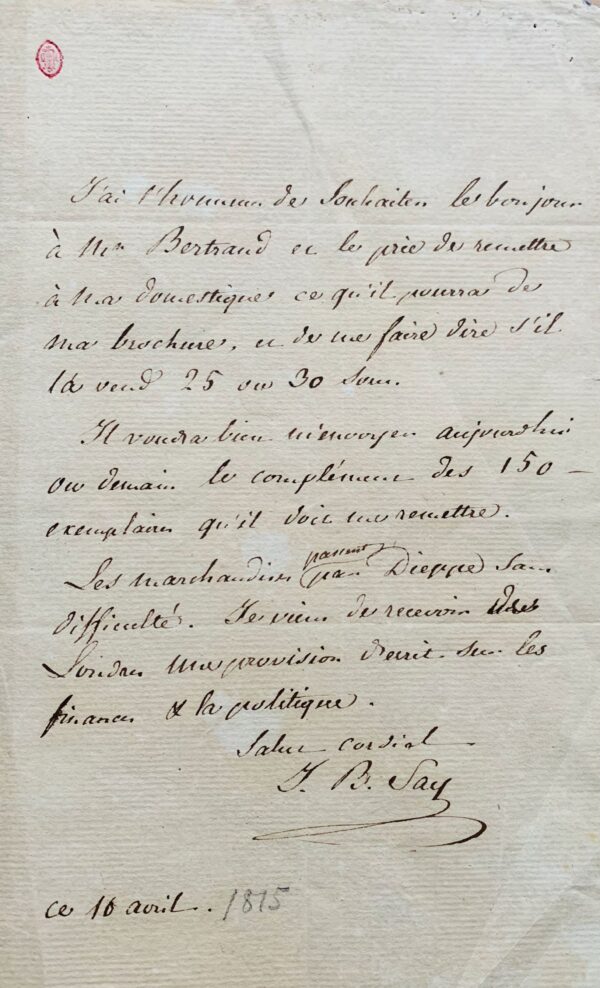 J'ai l'honneur de souhaiter le bonjour
à Mr Bertrand et le prie de remettre
à ma domestique ce qu'il pourra de
ma brochure, et de me faire dire s'il
la vend 25 ou 30 sous.
Il voudra bien m'envoyer aujourdhui
ou demain le complément des 150
exemplaires qu'il doit me remettre.
Les marchandises passent par Dieppe sans
difficulté. Je viens de recevoir de
Londres une provision d'ecrits sur les
finances & la politique.
Salut cordial
J. B. Say
ce 16 avril. 1815